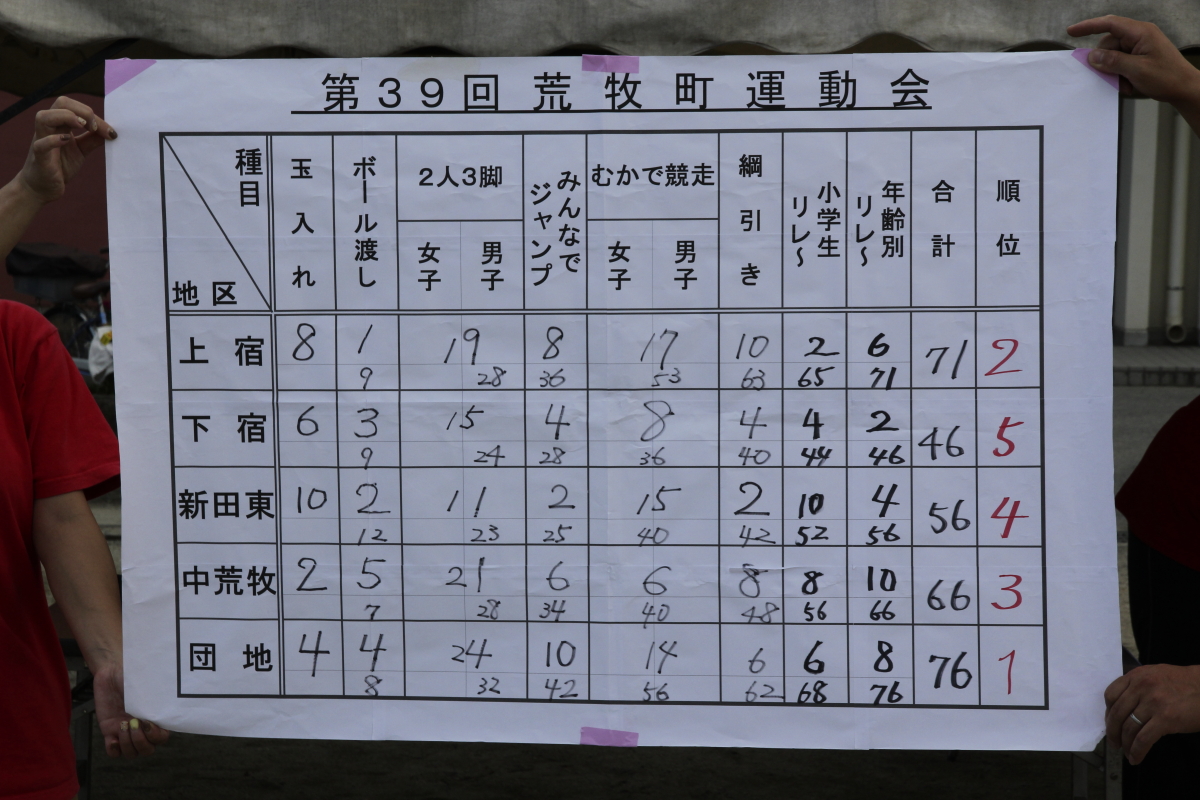 第39回 荒牧町運動会
種目 玉入れ ボール渡し 2人3脚 みんなでジャンプ むかで競走 綱引き 小学生リレ〜 年齢別リレ〜 合計 順位
地区 女子 男子 女子 男子
上宿 8 1 19 8 17 10 2 6 71 2
9 28 36 53 63 65 71
下宿 6 3 15 4 8 4 4 2 46 5
9 24 28 36 40 44 46
新田東 10 2 11 2 15 2 10 4 56 4
12 23 25 40 42 52 56
中荒牧 2 5 21 6 6 8 8 10 66 3
7 28 34 40 48 56 66
団地 4 4 24 10 14 6 6 8 76 1
8 32 42 56 62 68 76